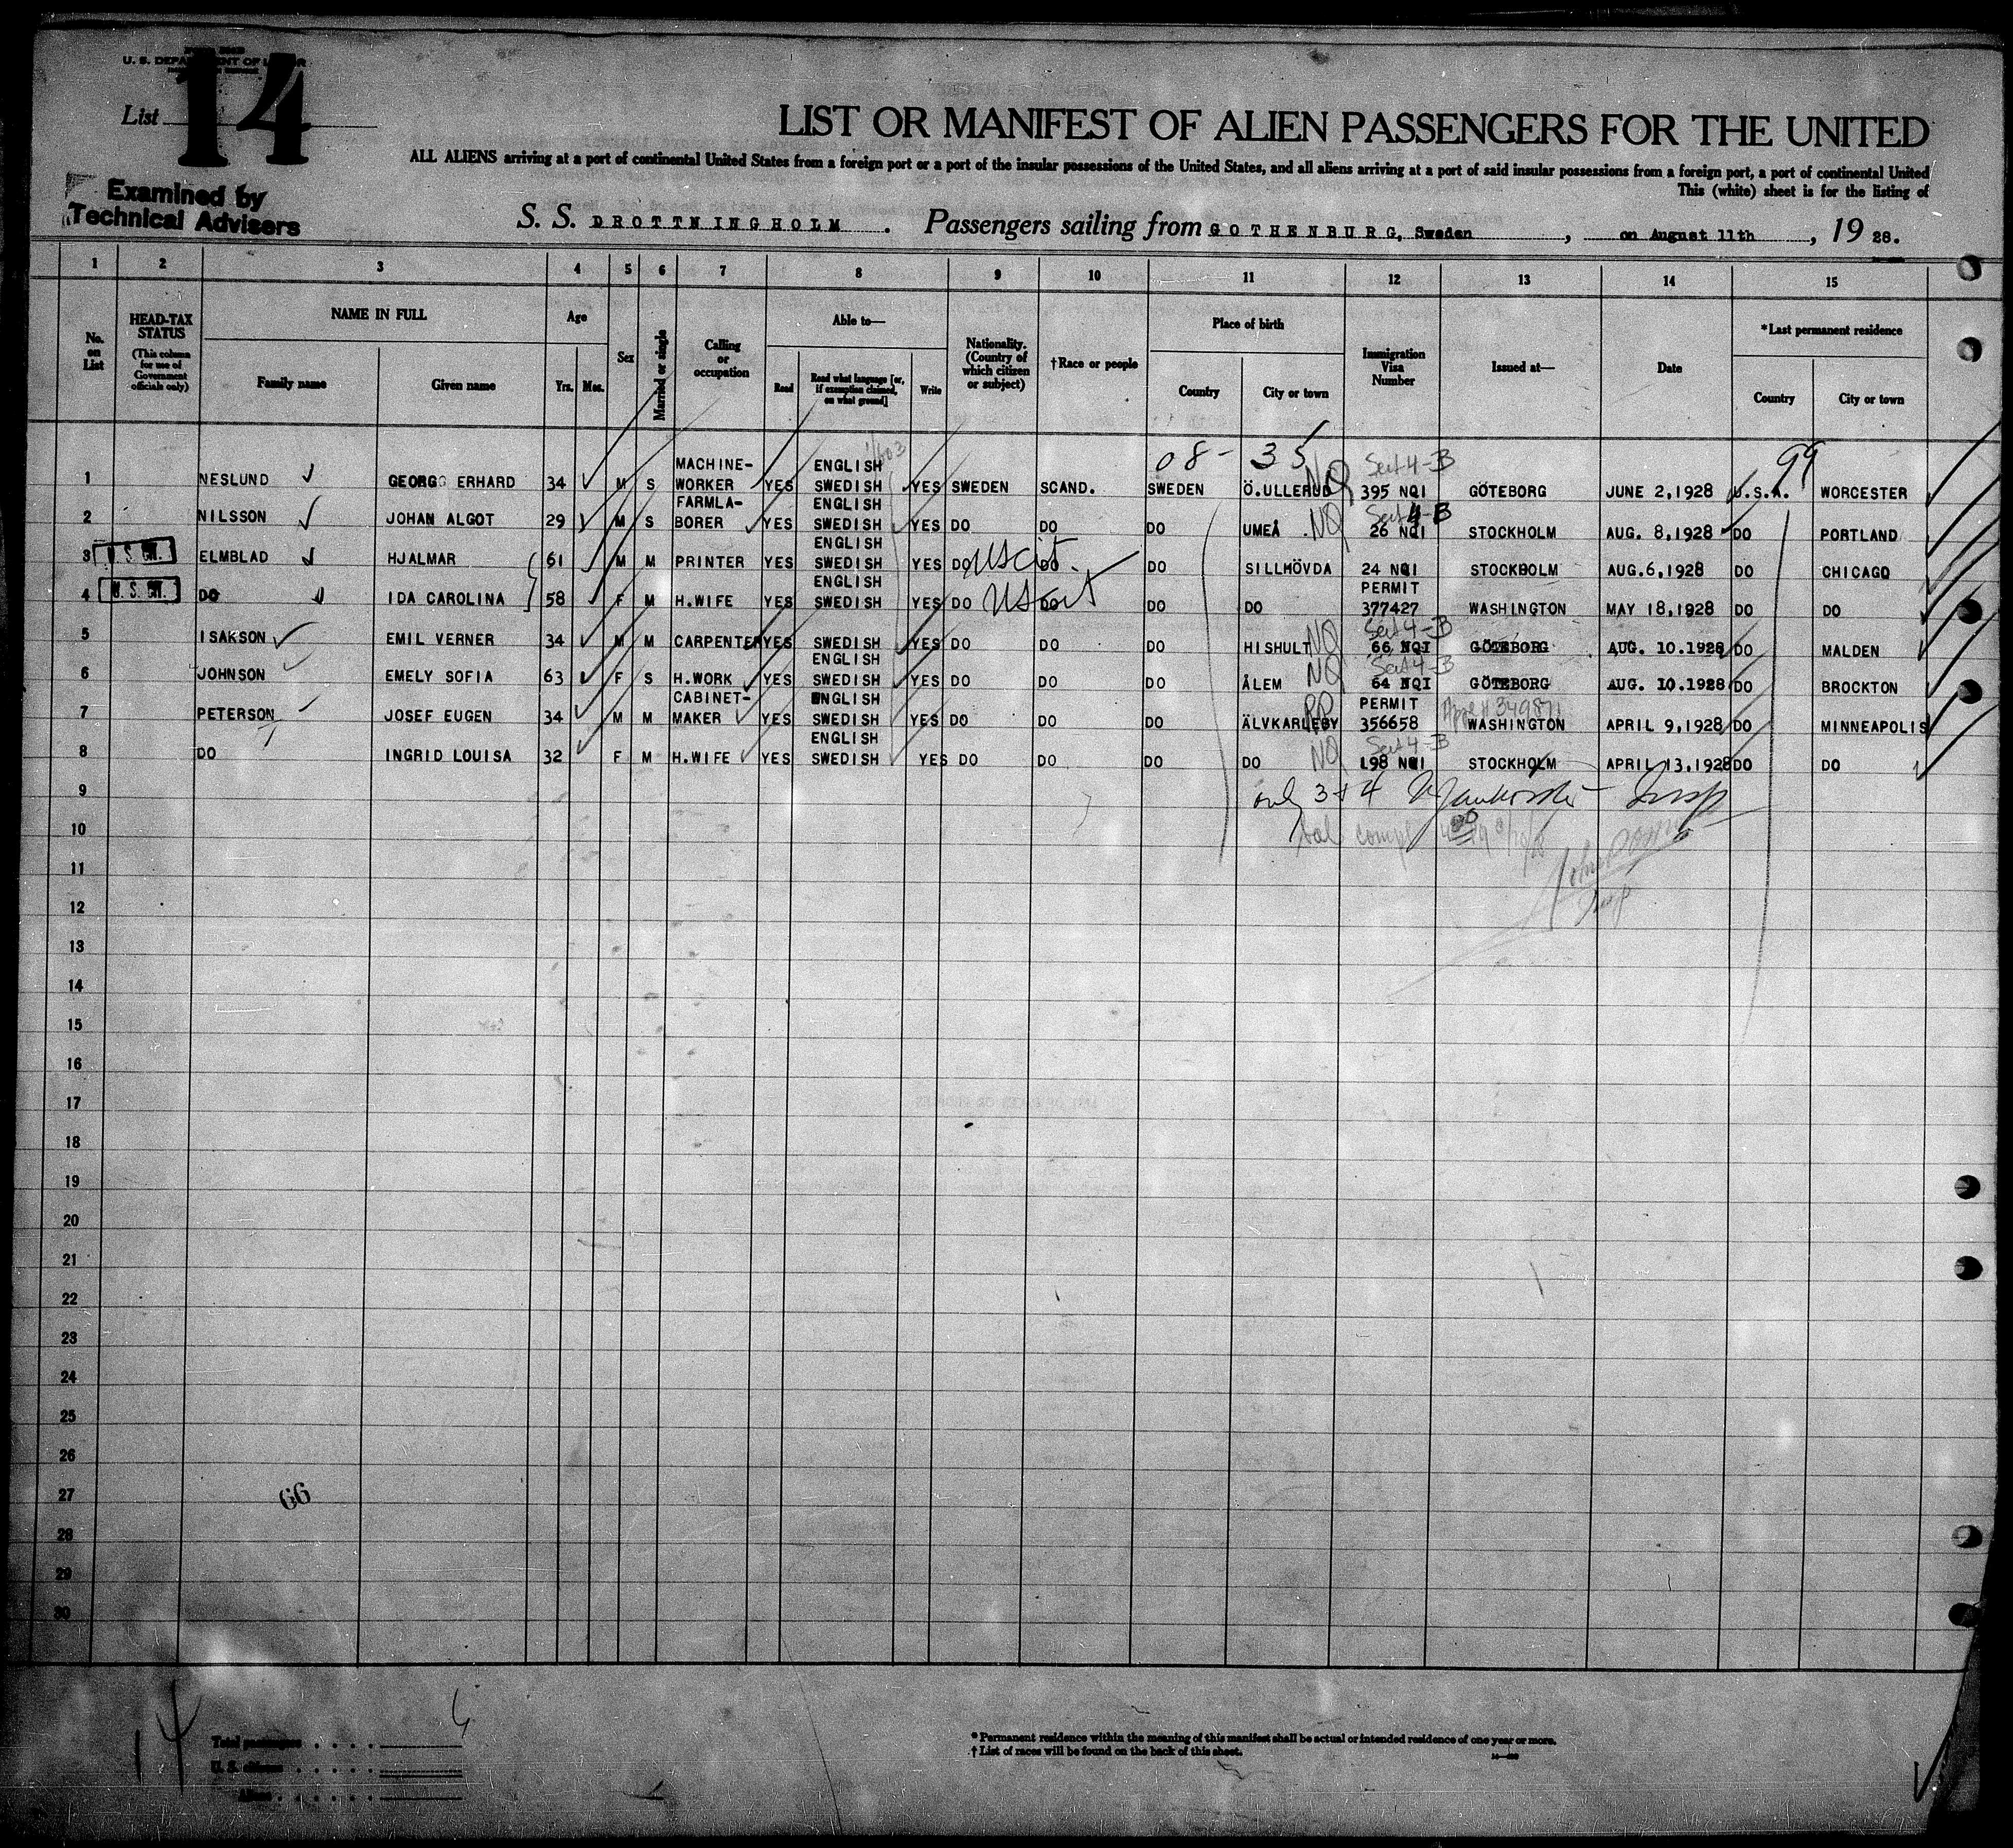 U. S. DEPARTMENT OF LABOR
List 14
LIST OR MANIFEST OF ALIEN PASSENGERS FOR THE UNITED
ALL ALIENS arriving at a port of continental United States from a foreign port or a port of the insular possessions of the United States, and all aliens arriving at a port of said insular possessions from a foreign port, a port of continental United
This (white) sheet is for the listing of
Examined by
Technical Advisers
S. S. DROTTNINGHOLM. Passengers sailing from GOTHENBURG, Sweden, on August 11th, 19 28.
1 2 3 4 5 6 7 8 9 10 11 12 13 14 15
No. on List
HEAD-TAX STATUS (This column for use of Government officials only)
NAME IN FULL Family name Given name
Age Yrs. Mos.
Sex
Married or single
Calling or occupation
Able to— Read Read what language [or, if exemption claimed, on what ground] Write
Nationality. (Country of which citizen or subject)
†Race or people
Place of birth Country City or town
Immigration Visa Number
Issued at—
Date
*Last permanent residence Country City or town
08- 35 99
1 NESLUND GEORG ERHARD 34 M S MACHINE-WORKER YES ENGLISH SWEDISH YES SWEDEN SCAND. SWEDEN Ö.ULLERUD NQ Sect 4-B 395 NQI GÖTEBORG JUNE 2,1928 U.S.A. WORCESTER
2 NILSSON JOHAN ALGOT 29 M S FARMLA-BORER YES ENGLISH SWEDISH YES DO DO DO UMEÅ NQ Sect 4-B 26 NQI STOCKHOLM AUG. 8,1928 DO PORTLAND
3 U.S. CIT. ELMBLAD HJALMAR 61 M M PRINTER YES ENGLISH SWEDISH YES DO US cit. DO DO SILLHÖVDA 24 NQI STOCKHOLM AUG.6,1928 DO CHICAGO
4 U.S. CIT. DO IDA CAROLINA 58 F M H.WIFE YES ENGLISH SWEDISH YES DO US cit DO DO DO PERMIT 377427 WASHINGTON MAY 18,1928 DO DO
5 ISAKSON EMIL VERNER 34 M M CARPENTER YES SWEDISH YES DO DO DO HISHULT NQ Sect 4-B 66 NQI GÖTEBORG AUG. 10.1928 DO MALDEN
6 JOHNSON EMELY SOFIA 63 F S H.WORK YES ENGLISH SWEDISH YES DO DO DO ÅLEM NQ Sect 4-B 64 NQI GÖTEBORG AUG. 10.1928 DO BROCKTON
7 PETERSON JOSEF EUGEN 34 M M CABINET-MAKER YES ENGLISH SWEDISH YES DO DO DO ÄLVKARLEBY RP PERMIT 356658 WASHINGTON APRIL 9,1928 DO MINNEAPOLIS
8 DO INGRID LOUISA 32 F M H.WIFE YES ENGLISH SWEDISH YES DO DO DO DO NQ Sect 4-B 198 NQI STOCKHOLM APRIL 13,1928 DO DO
9 only 3 + 4 Insp
10
11
12
13
14
15
16
17
18
19
20
21
22
23
24
25
26
27 66
28
29
30
14
Total passengers
U. S. citizens
Aliens
* Permanent residence within the meaning of this manifest shall be actual or intended residence of one year or more.
† List of races will be found on the back of this sheet.